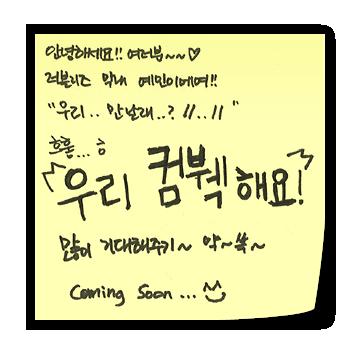 안녕하세요!! 여러분~~♡
러블리즈 막내 예인이에여!!
"우리.. 만날래..? //..//"
흐흠...ㅎ
우리 컴붹해요!
많이 기대해주기~ 약~쏙~
Coming Soon...